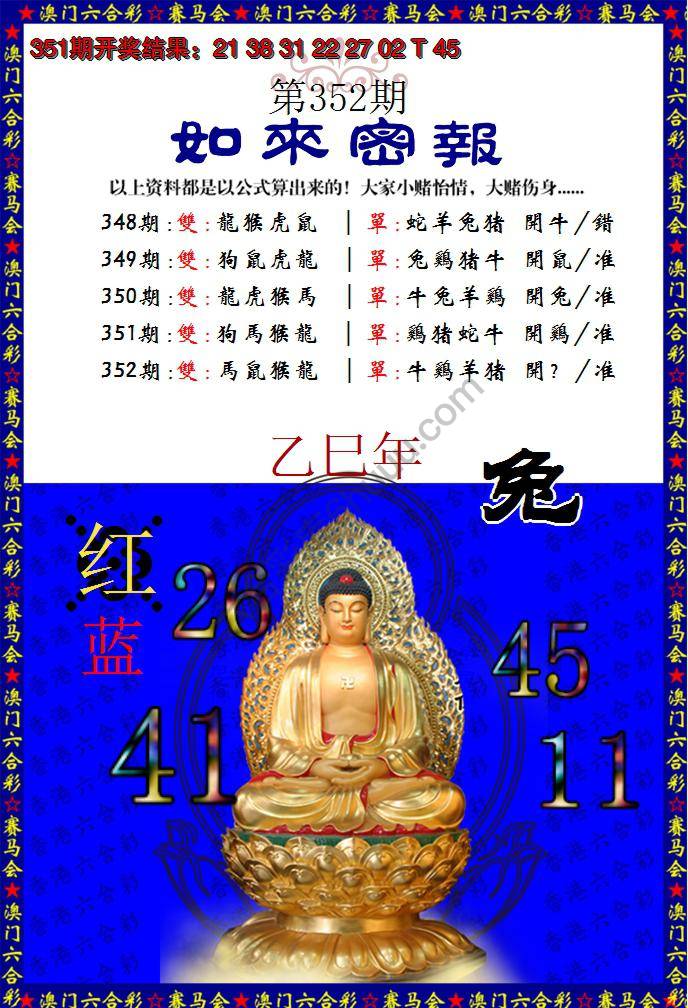 ★澳门六合彩☆赛马会★澳门六合彩☆赛马会★澳门六合彩☆赛马会★
351期开奖结果：21 38 31 22 27 02 T 45
第352期
如來密報
以上资料都是以公式算出来的！大家小赌怡情，大赌伤身......
348期:雙:龍猴虎鼠 |單:蛇羊兔猪 開牛/錯
349期:雙:狗鼠虎龍 |單:兔鷄猪牛 開鼠/准
350期:雙:龍虎猴馬 |單:牛兔羊鷄 開兔/准
351期:雙:狗馬猴龍 |單:鷄猪蛇牛 開鷄/准
352期:雙:馬鼠猴龍 |單:牛鷄羊猪 開？/准
乙巳年
兔
红
蓝
26
45
41
11
香港六合彩
★澳门六合彩☆赛马会★澳门六合彩☆赛马会★澳门六合彩☆赛马会★